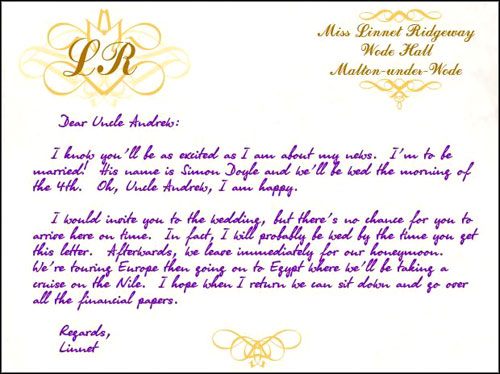 LR
Miss Linnet Ridgeway
Wode Hall
Malton-under-Wode
Dear Uncle Andrew:
I know you'll be as excited as I am about my news. I'm to be
married! His name is Simon Doyle and we'll be wed the morning of
the 4th. Oh, Uncle Andrew, I am happy.
I would invite you to the wedding, but there's no chance for you to
arrive here on time. In fact, I will probably be wed by the time you get
this letter. Afterwards, we leave immediately for our honeymoon.
We're touring Europe then going on to Egypt where we'll be taking a
cruise on the Nile. I hope when I return we can sit down and go over
all the financial papers.
Regards,
Linnet